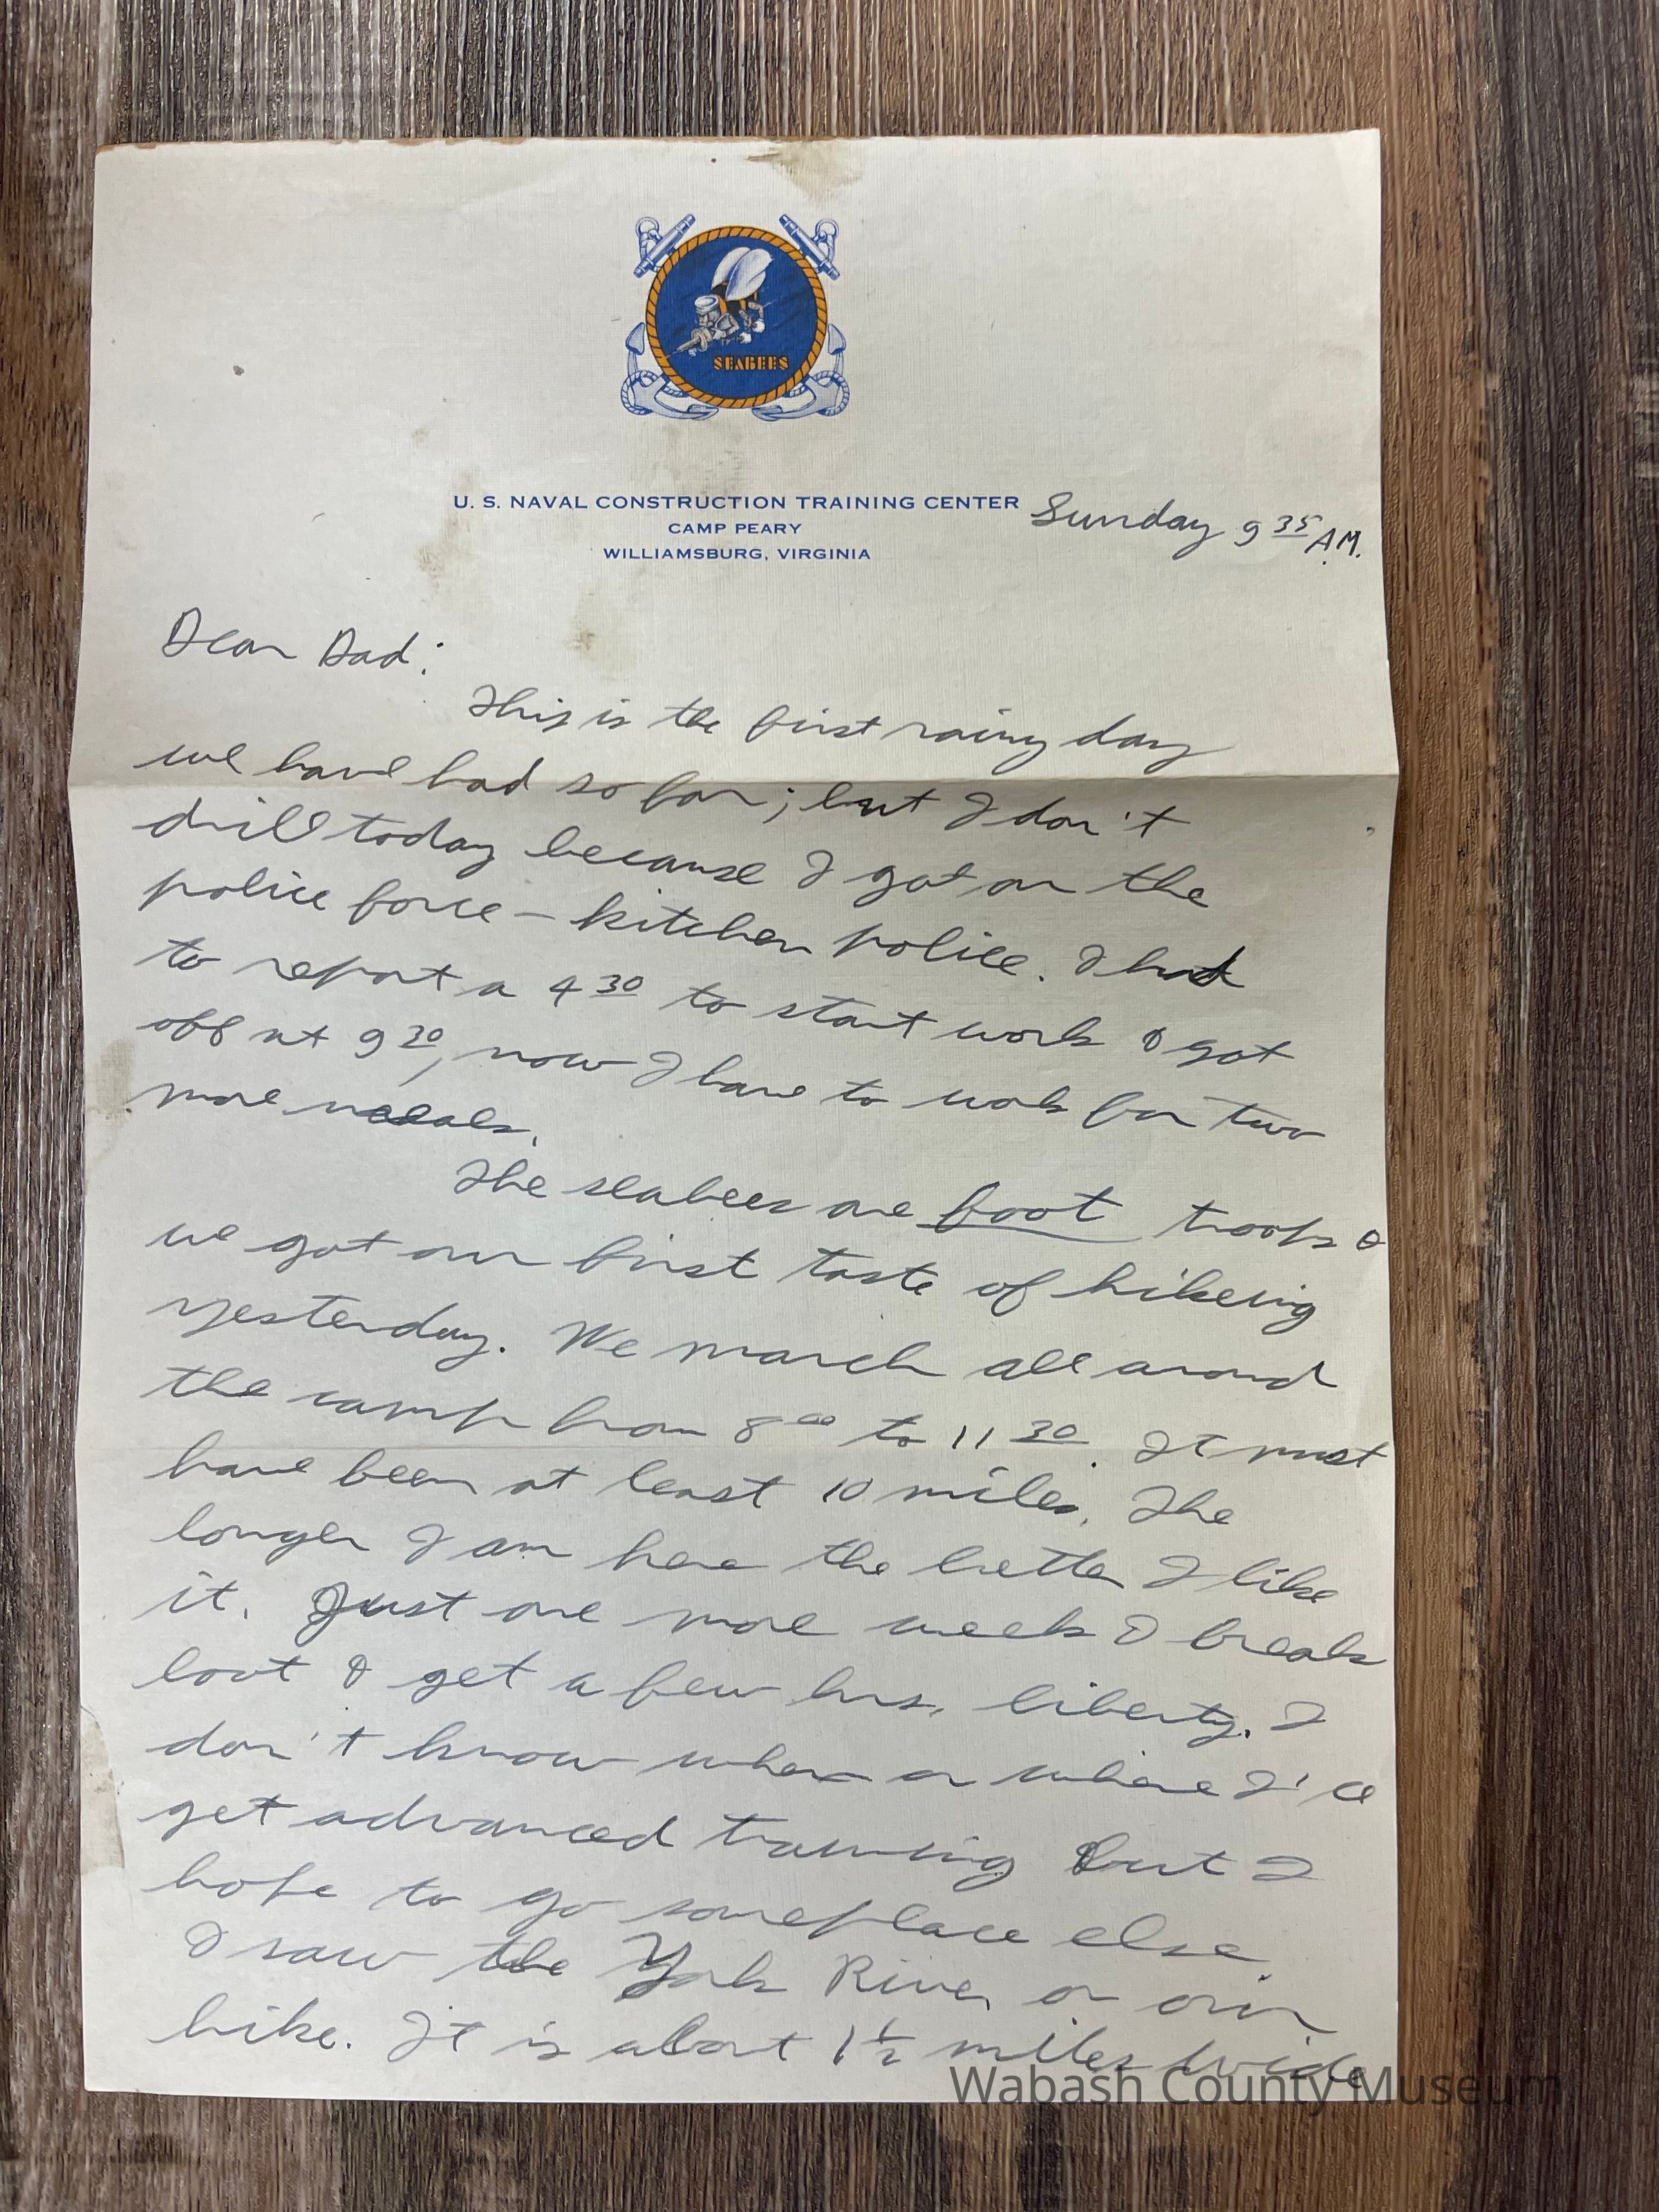 SEABEES
U. S. NAVAL CONSTRUCTION TRAINING CENTER
CAMP PEARY
WILLIAMSBURG, VIRGINIA
Sunday 9 35 A.M.
Dear Dad:
This is the first rainy day
we have had so far; but I don't
drill today because I got on the
police force – kitchen police. I had
to report a 4 30 to start work & got
off at 9 30, now I have to work for two
more meals.
The seabees are foot troops &
we got our first taste of hikeing
yesterday. We march all around
the camp from 8 00 to 11 30. It must
have been at least 10 miles. The
longer I am here the better I like
it. Just one more week & I break
boot & get a few hrs. liberty. I
don't know when or where I'll
get advanced training but I
hope to go someplace else.
I saw the York River on our
hike. It is about 1 1/2 miles wide
Wabash County Museum